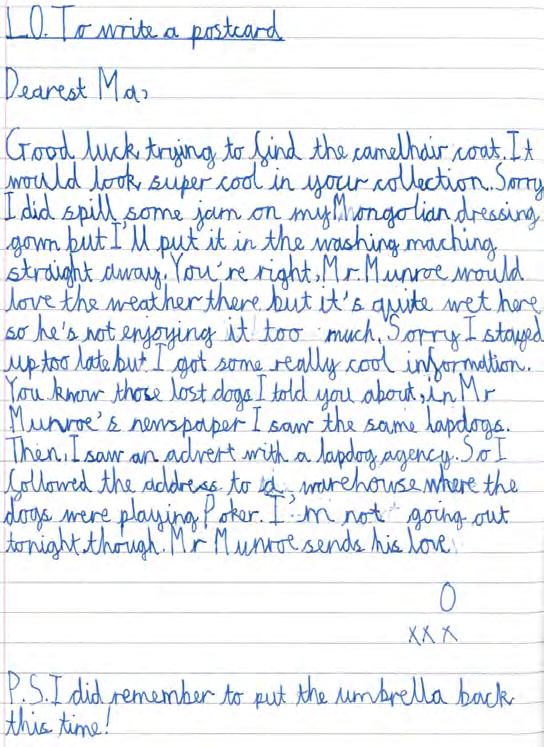 L.O. To write a postcard
Dearest Ma,
Good luck trying to find the camelhair coat. It
would look super cool in your collection. Sorry
I did spill some jam on my Mongolian dressing
gown but I'll put it in the washing maching
straight away. You're right, Mr. Munroe would
love the weather there but it's quite wet here
so he's not enjoying it too much. Sorry I stayed
up too late but I got some really cool information.
You know those lost dogs I told you about, in Mr
Munroe's newspaper I saw the same lapdogs.
Then, I saw an advert with a lapdog agency. So I
followed the address to a warehouse where the
dogs were playing Poker. I'm not going out
tonight though. Mr Munroe sends his love
O
xxx
P.S. I did remember to put the umbrella back
this time!